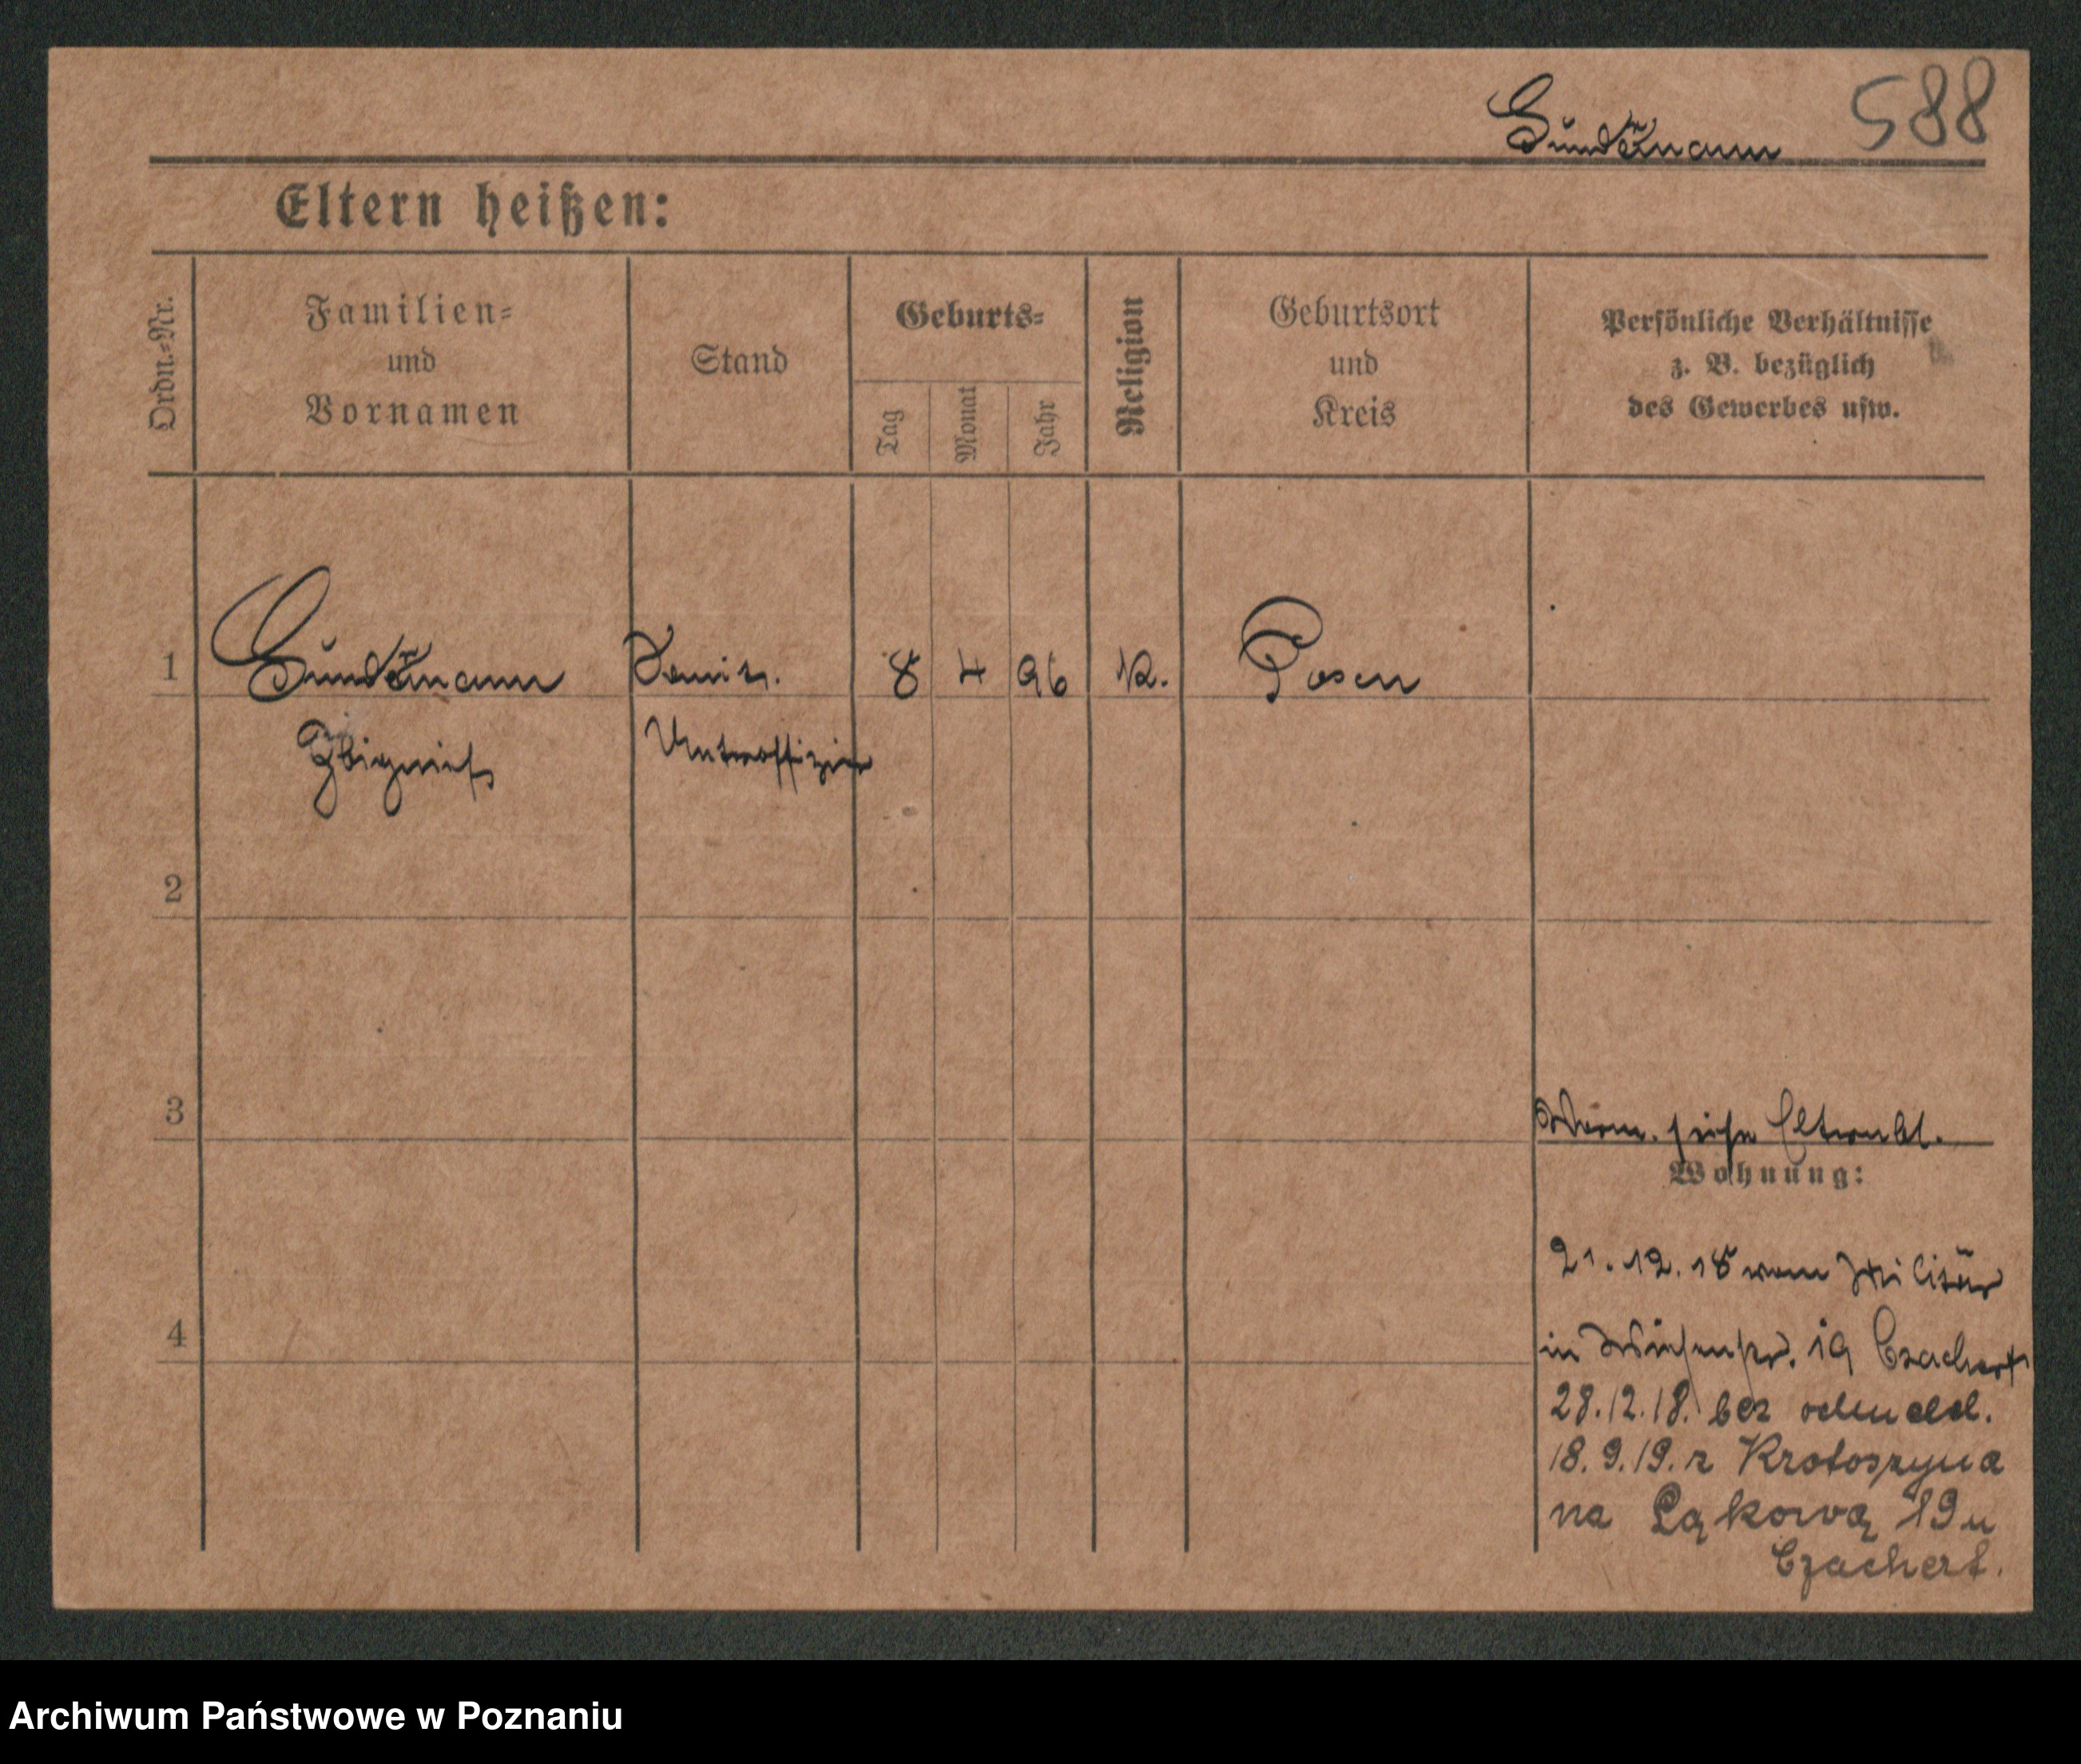 588
Gundermann
Eltern heißen:
Ordn.=Nr.
Familien=
und
Vornamen
Stand
Geburts=
Tag
Monat
Jahr
Religion
Geburtsort
und
Kreis
Persönliche Verhältnisse
z. B. bezüglich
des Gewerbes usw.
1
Gundermann 8 4 96 K. Posen
Zbigniew Unteroffizier
2
3
siehe Elternbl.
Wohnung:
21.12.18 vom Militär
in Wiesenstr. 19 Czachert
4
28.12.18. bez
18.9.19. z Krotoszyna
na Łąkową 19 u
Czachert.
Archiwum Państwowe w Poznaniu